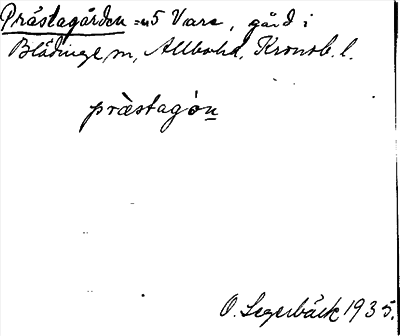 Prästagården =n5 Vare, gård i
Blädinge sn, Allboh d, Kronob. l.
præ̀stagón
O. Segerbäck 1935.